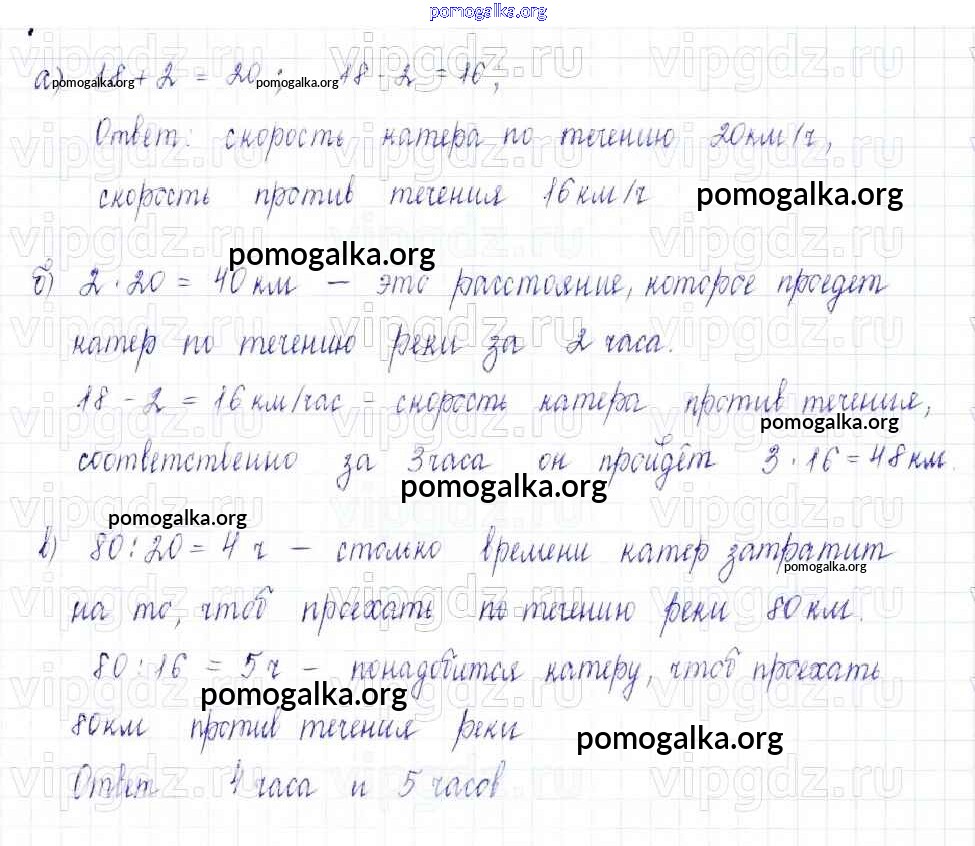 pomogalka.org
а) 18 + 2 = 20; 18 - 2 = 16;
Ответ: скорость катера по течению 20км/ч,
скорость против течения 16км/ч
б) 2 · 20 = 40 км — это расстояние, которое проедет
катер по течению реки за 2 часа.
18 - 2 = 16 км/час - скорость катера против течения,
соответственно за 3 часа он пройдёт 3 · 16 = 48 км.
в) 80 : 20 = 4 ч — столько времени катер затратит
на то, чтоб проехать по течению реки 80 км.
80 : 16 = 5 ч — понадобится катеру, чтоб проехать
80км против течения реки
Ответ 4 часа и 5 часов
pomogalka.org
pomogalka.org
pomogalka.org
pomogalka.org
pomogalka.org
pomogalka.org
pomogalka.org
pomogalka.org
pomogalka.org
pomogalka.org
pomogalka.org
vipgdz.ru